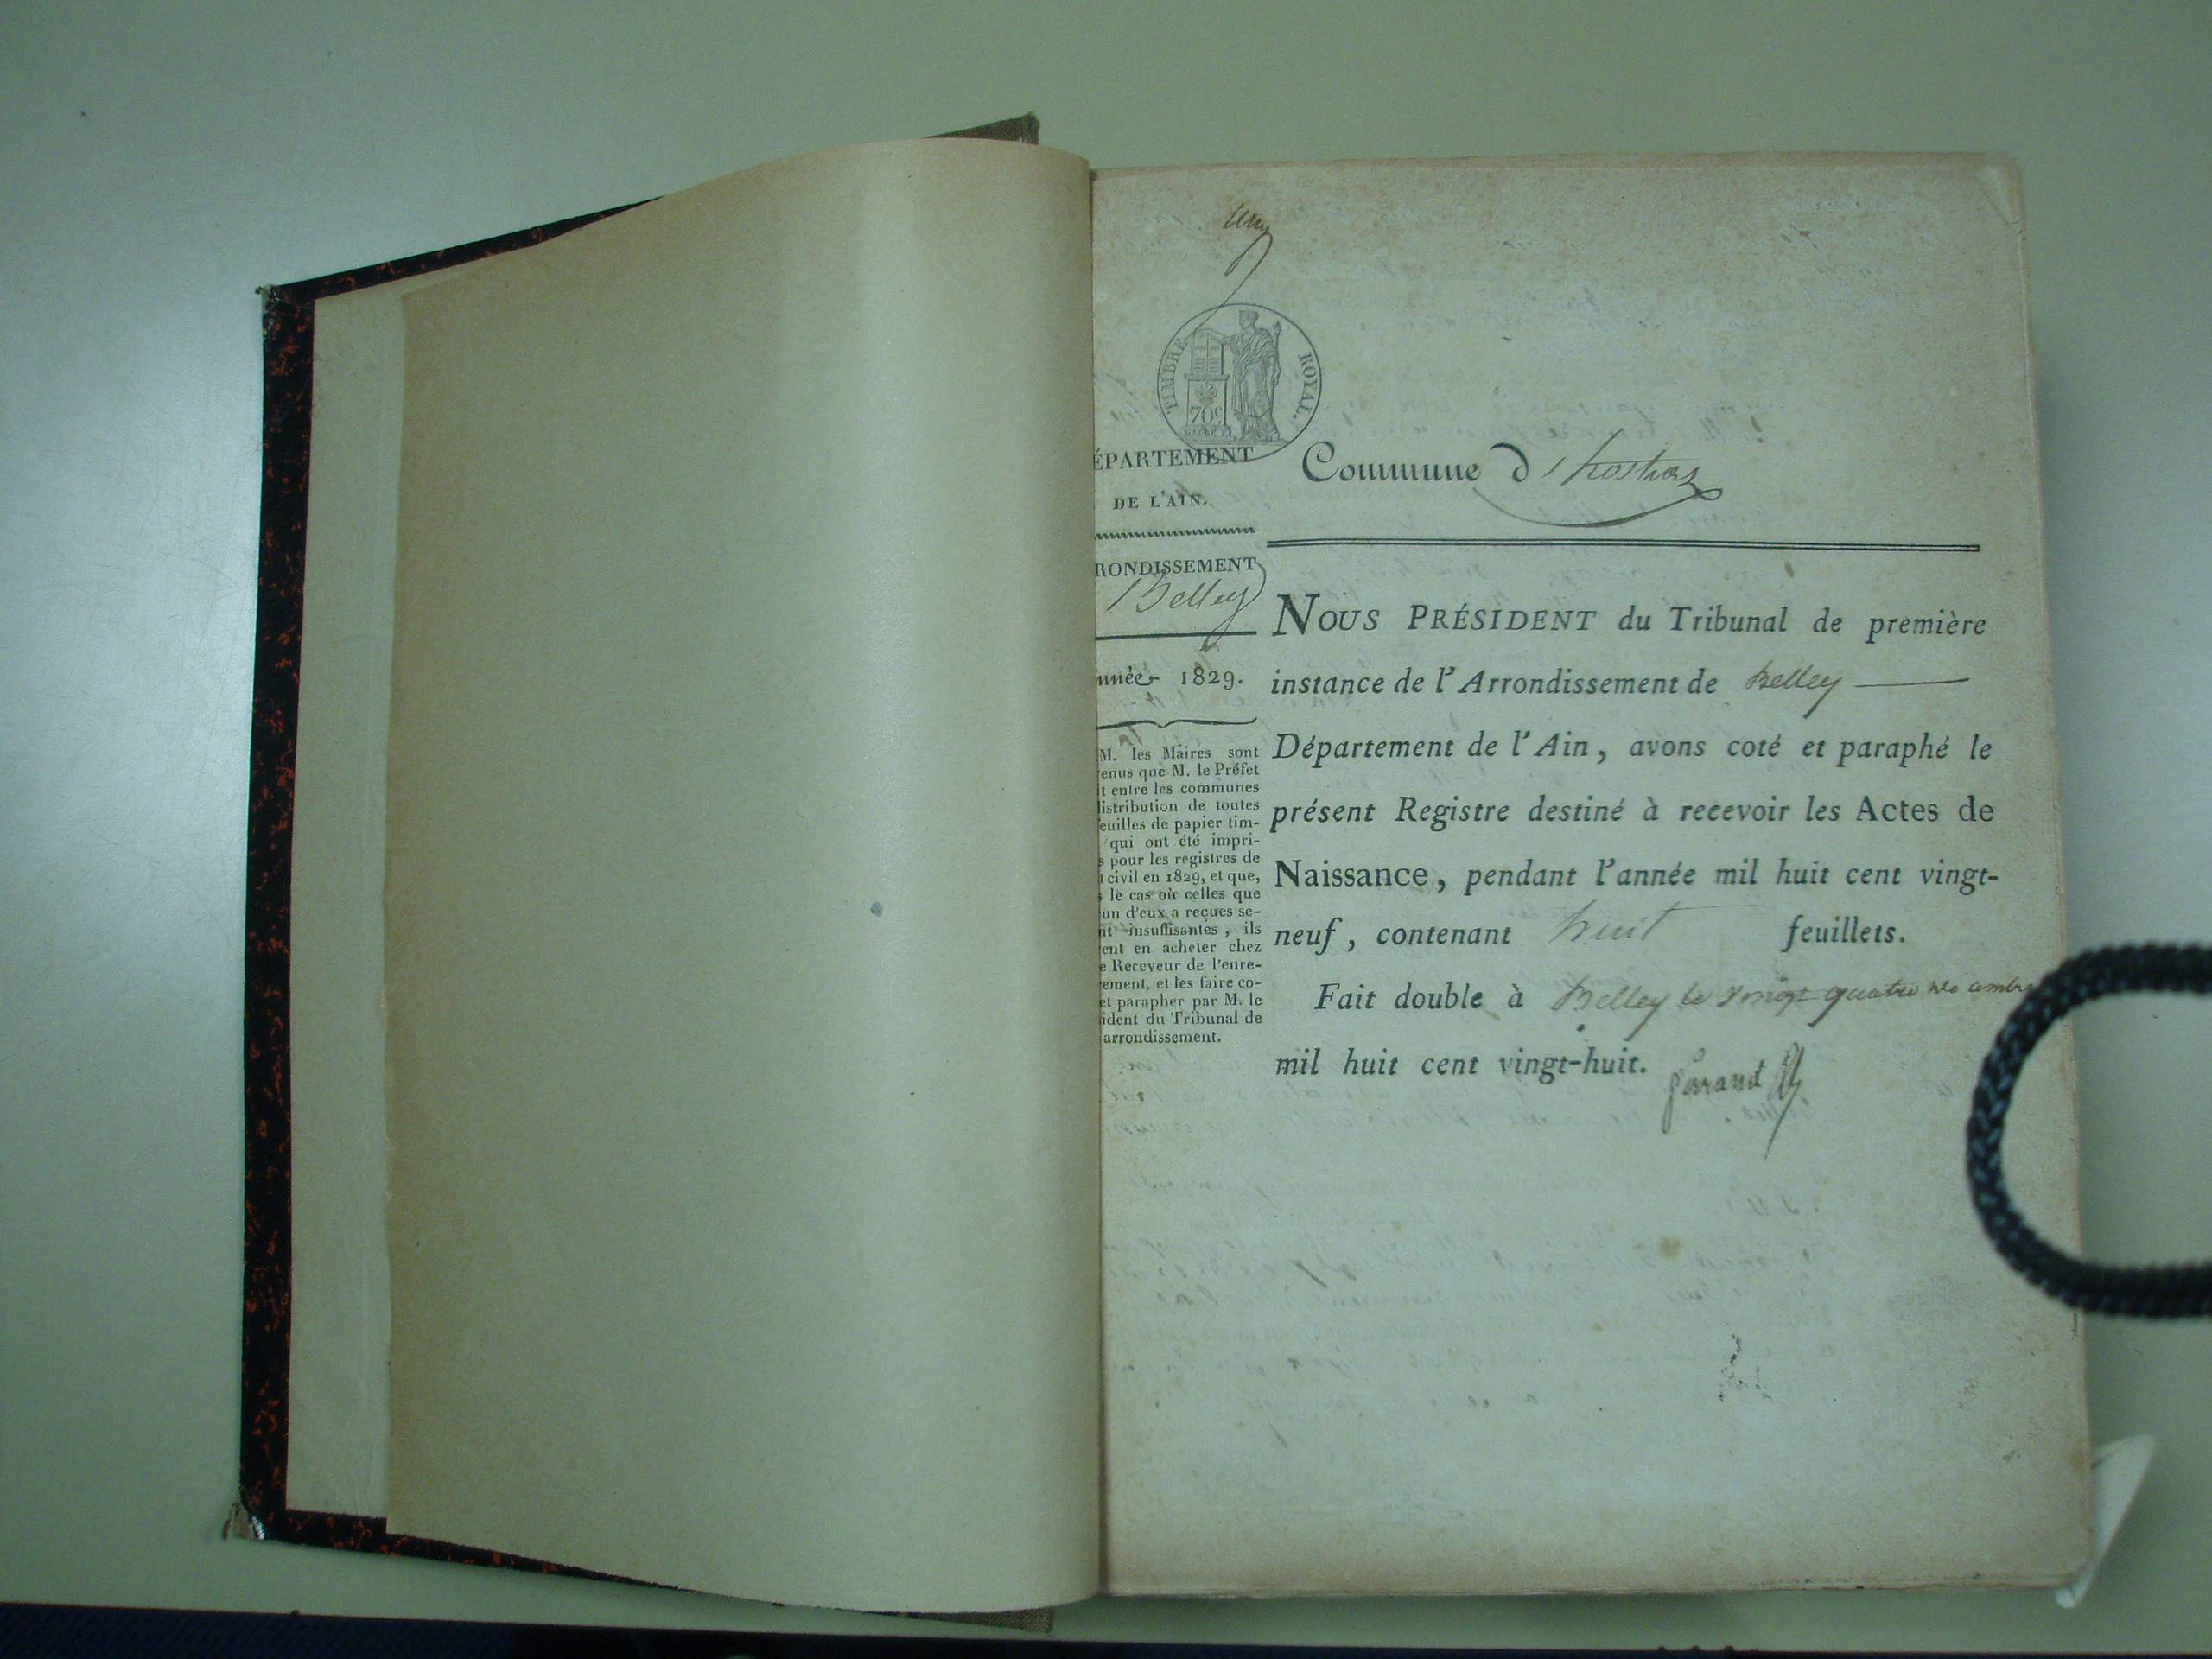 un
TIMBRE ROYAL.
70c
ÉPARTEMENT
DE L'AIN.
RONDISSEMENT
Belley
nnée 1829.
M. les Maires sont
enus que M. le Préfet
t entre les communes
istribution de toutes
euilles de papier tim-
qui ont été impri-
s pour les registres de
t civil en 1829, et que,
s le cas où celles que
un d'eux a reçues se-
nt insuffisantes, ils
ent en acheter chez
e Receveur de l'enre-
ement, et les faire co-
et parapher par M. le
ident du Tribunal de
arrondissement.
Commune d'hostias
NOUS PRÉSIDENT du Tribunal de première
instance de l'Arrondissement de Belley
Département de l'Ain, avons coté et paraphé le
présent Registre destiné à recevoir les Actes de
Naissance, pendant l'année mil huit cent vingt-
neuf, contenant huit feuillets.
Fait double à Belley le vingt quatre décembre
mil huit cent vingt-huit.